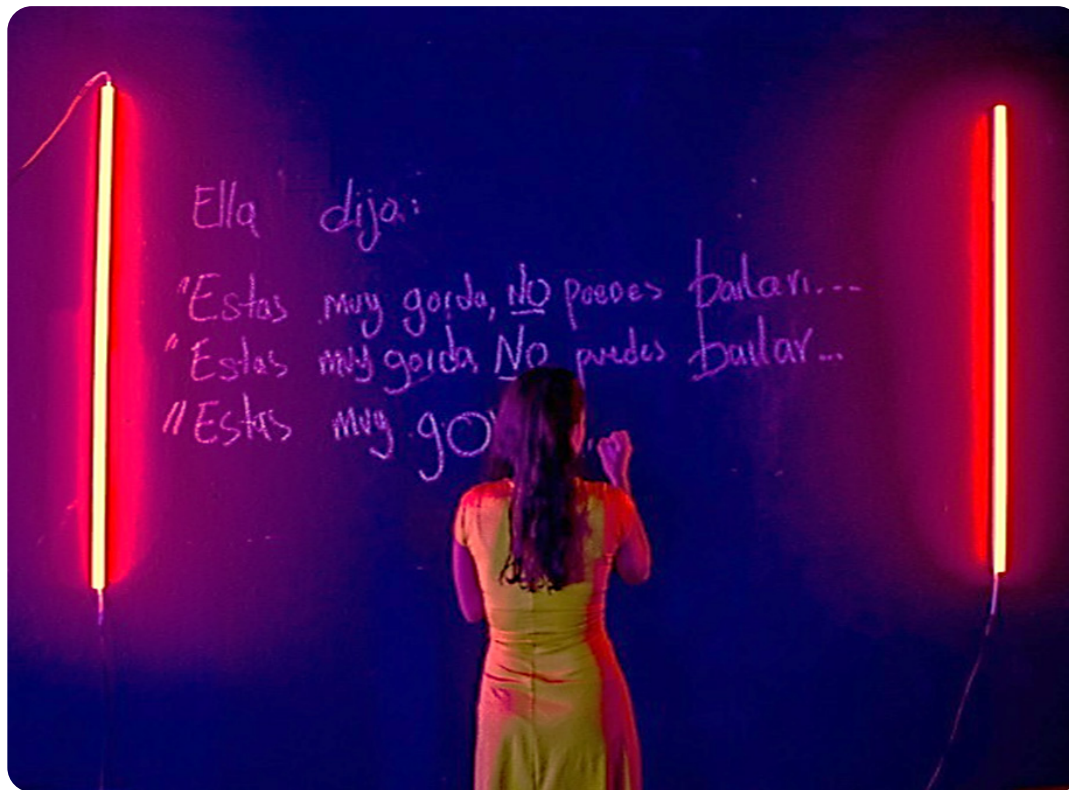 Ella dija:
"Estas muy gorda, NO puedes bailar...
"Estas muy gorda, No puedes bailar...
"Estas muy gor